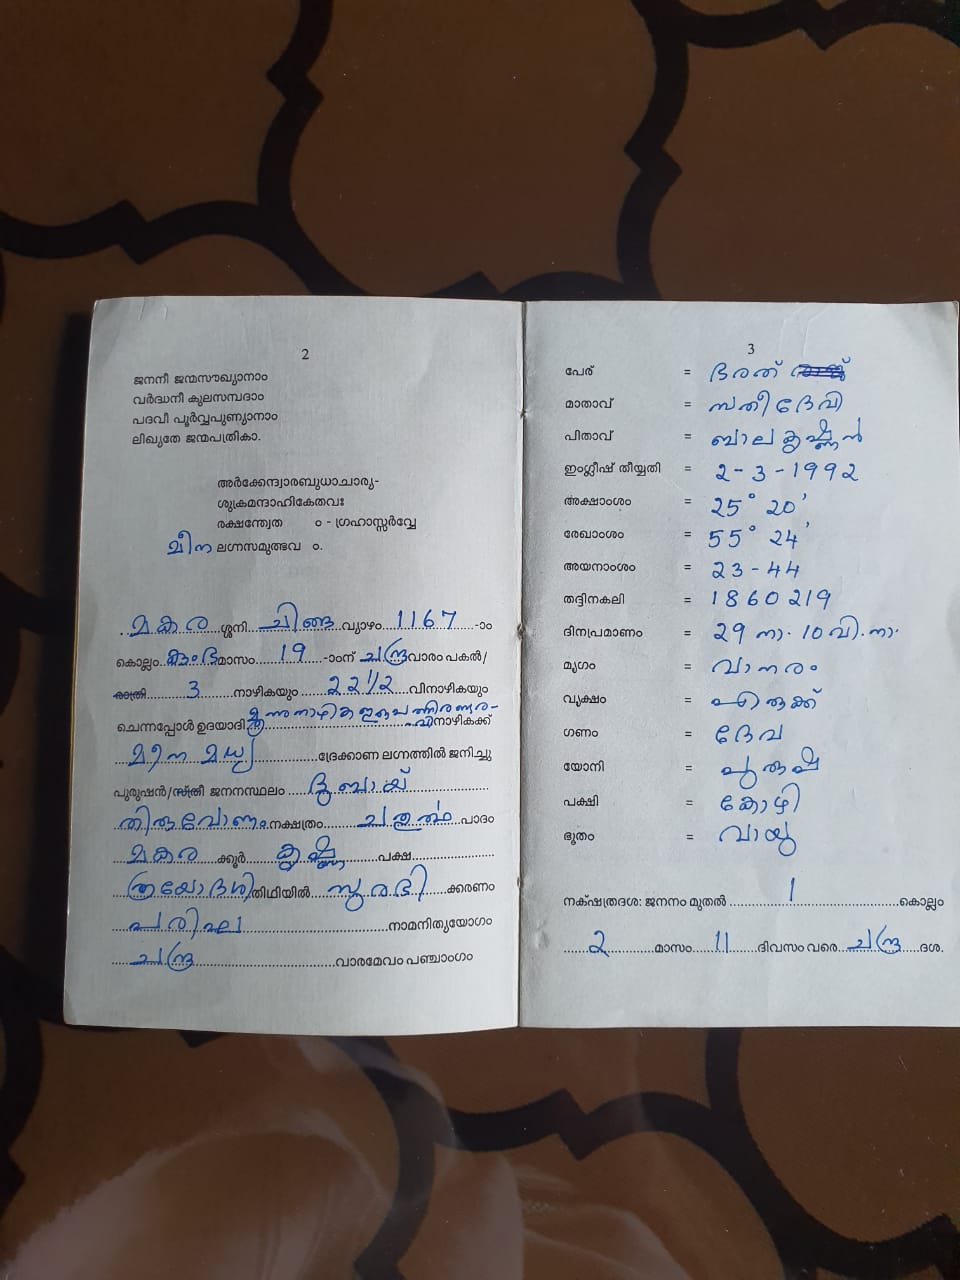 2
ജനനീ ജന്മസൗഖ്യാനാം
വർദ്ധനീ കുലസമ്പദാം
പദവീ പൂർവ്വപുണ്യാനാം
ലിഖ്യതേ ജന്മപത്രികാ.
അർക്കേന്ദ്വാരബുധാചാര്യ-
ശുക്രമന്ദാഹികേതവഃ
രക്ഷന്ത്വേത ം - ഗ്രഹാസ്സർവ്വേ
മീന ലഗ്നസമുത്ഭവ ം.
മകര ശ്ശനി ചിങ്ങ വ്യാഴം 1167 -ാം
കൊല്ലം കുംഭ മാസം 19 -ാംന് ചന്ദ്ര വാരം പകൽ/
രാത്രി 3 നാഴികയും 22 1/2 വിനാഴികയും
ചെന്നപ്പോൾ ഉദയാദി മൂന്നുനാഴിക ഇരുപത്തിരണ്ടര- വിനാഴികക്ക്
മീന മധ്യ ദ്രേക്കാണ ലഗ്നത്തിൽ ജനിച്ചു
പുരുഷൻ/സ്ത്രീ ജനനസ്ഥലം ദുബായ്
തിരുവോണം നക്ഷത്രം ചതുർത്ഥ പാദം
മകര ക്കൂർ കൃഷ്ണ പക്ഷ
ത്രയോദശി തിഥിയിൽ സുരഭി ക്കരണം
പരിഘ നാമനിത്യയോഗം
ചന്ദ്ര വാരമേവം പഞ്ചാംഗം
3
പേര് = ഭരത്
മാതാവ് = സതീദേവി
പിതാവ് = ബാലകൃഷ്ണൻ
ഇംഗ്ലീഷ് തീയ്യതി = 2-3-1992
അക്ഷാംശം = 25° 20'
രേഖാംശം = 55° 24'
അയനാംശം = 23-44
തദ്ദിനകലി = 1860219
ദിനപ്രമാണം = 29 നാ. 10 വി.നാ.
മൃഗം = വാനരം
വൃക്ഷം = എരുക്ക്
ഗണം = ദേവ
യോനി = പുരുഷ
പക്ഷി = കോഴി
ഭൂതം = വായു
നക്ഷത്രദശ: ജനനം മുതൽ 1 കൊല്ലം
2 മാസം 11 ദിവസം വരെ ചന്ദ്ര ദശ.